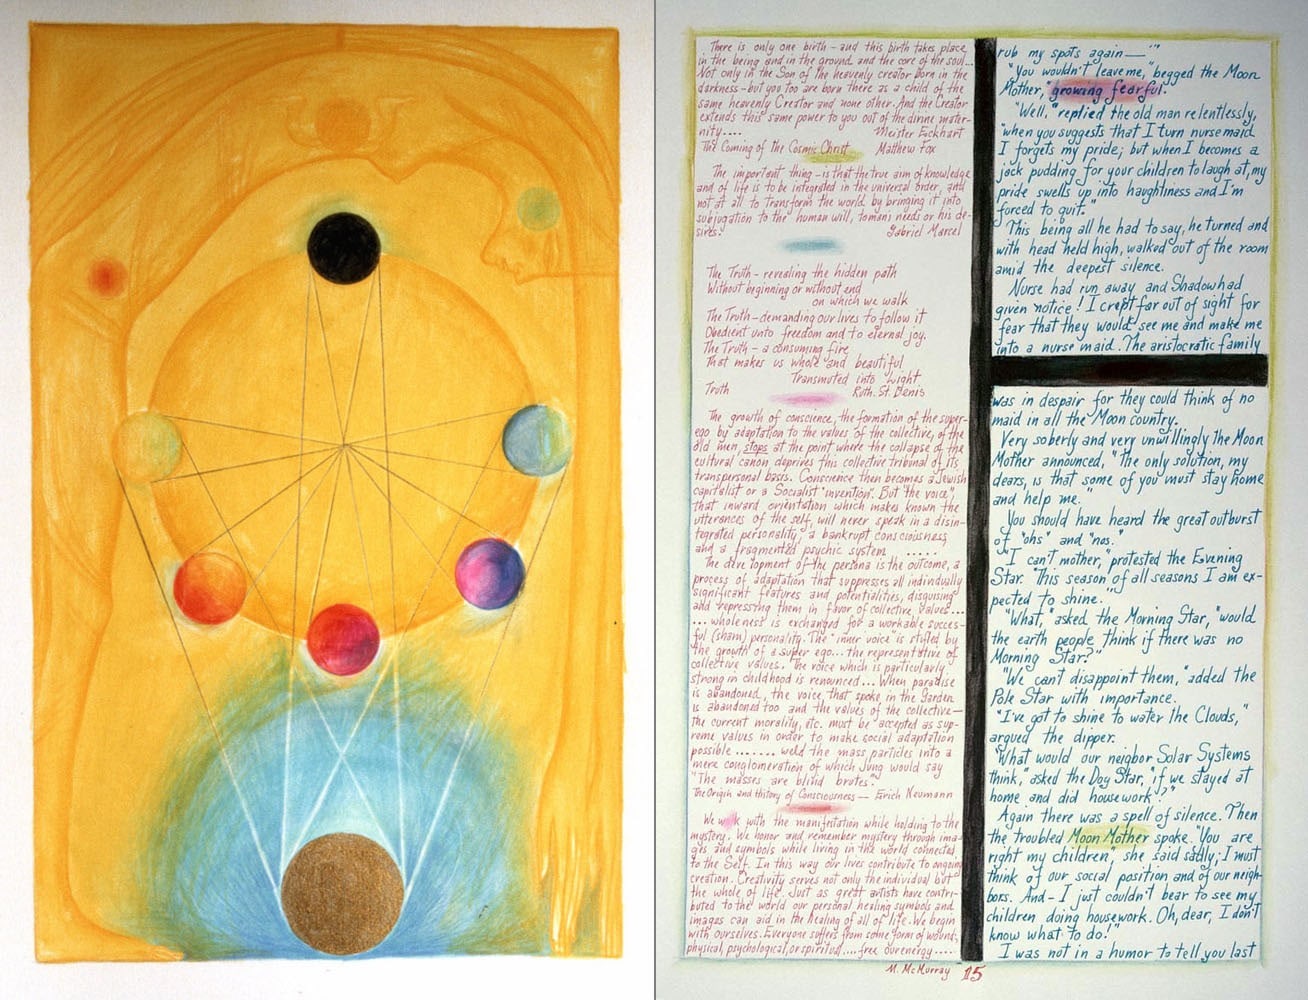 There is only one birth – and this birth takes place
in the being and in the ground and the core of the soul...
Not only is the Son of the heavenly creator born in the
darkness – but you too are born there as a child of the
same heavenly Creator and none other. And the Creator
extends this same power to you out of the divine mater-
nity.... Meister Eckhart
The Coming of the Cosmic Christ Matthew Fox
The important thing – is that the true aim of knowledge
and of life is to be integrated in the universal order, and
not at all to transform the world by bringing it into
subjugation to the human will, to man's needs or his de-
sires. Gabriel Marcel
The Truth – revealing the hidden path
Without beginning or without end
on which we walk
The Truth – demanding our lives to follow it
Obedient unto freedom and to eternal joy.
The Truth – a consuming fire
That makes us whole and beautiful
Transmuted into Light
Truth Ruth St. Denis
The growth of conscience, the formation of the super-
ego by adaptation to the values of the collective, of the
old men, stops at the point where the collapse of the
cultural canon deprives this collective tribunal of its
transpersonal basis. Conscience then becomes a Jewish
capitalist or a Socialist "invention". But "the voice",
that inward orientation which makes known the
utterances of the self, will never speak in a disin-
tegrated personality, a bankrupt consciousness,
and a fragmented psychic system .....
The development of the persona is the outcome, a
process of adaptation that suppresses all individually
significant features and potentialities, disguising
and repressing them in favor of collective values....
... wholeness is exchanged for a workable succes-
ful (sham) personality. The "inner voice" is stifled by
the growth of a super ego... the representative of
collective values. The voice which is particularly
strong in childhood is renounced... When paradise
is abandoned, the voice, that spoke in the Garden
is abandoned too and the values of the collective—
the current morality, etc. must be accepted as sup-
reme values in order to make social adaptation
possible ....... weld the mass particles into a
mere conglomeration of which Jung would say
"The masses are blind brutes."
The Origin and History of Consciousness — Erich Neumann
We work with the manifestation while holding to the
mystery. We honor and remember mystery through ima-
ges and symbols while living in the world connected
to the Self. In this way our lives contribute to ongoing
creation. Creativity serves not only the individual but
the whole of life. Just as great artists have contri-
buted to the world our personal healing symbols and
images can aid in the healing of all of life. We begin
with ourselves. Everyone suffers from some form of wound;
physical, psychological, or spiritual.... free our energy....
rub my spots again—'"
"You wouldn't leave me," begged the Moon
Mother, "growing fearful.
"Well," replied the old man relentlessly,
"when you suggests that I turn nurse maid
I forgets my pride; but when I becomes a
jack pudding for your children to laugh at, my
pride swells up into haughtiness and I'm
forced to quit."
This being all he had to say, he turned and
with head held high, walked out of the room
amid the deepest silence.
Nurse had run away and Shadow had
given notice! I crept far out of sight for
fear that they would see me and make me
into a nurse maid. The aristocratic family
was in despair for they could think of no
maid in all the Moon country.
Very soberly and very unwillingly the Moon
Mother announced, "The only solution, my
dears, is that some of you must stay home
and help me."
You should have heard the great outburst
of "ohs" and "nos."
"I can't mother," protested the Evening
Star. "This season of all seasons I am ex-
pected to shine."
"What," asked the Morning Star, "would
the earth people think if there was no
Morning Star?"
"We can't disappoint them," added the
Pole Star with importance.
"I've got to shine to water the Clouds,"
argued the dipper.
"What would our neigbor Solar Systems
think," asked the Dog Star, "if we stayed at
home and did housework?"
Again there was a spell of silence. Then
the troubled Moon Mother spoke. "You are
right my children," she said sadly; I must
think of our social position and of our neigh-
bors. And – I just couldn't bear to see my
children doing housework. Oh, dear, I don't
know what to do!"
I was not in a humor to tell you last
M. McMurray 15